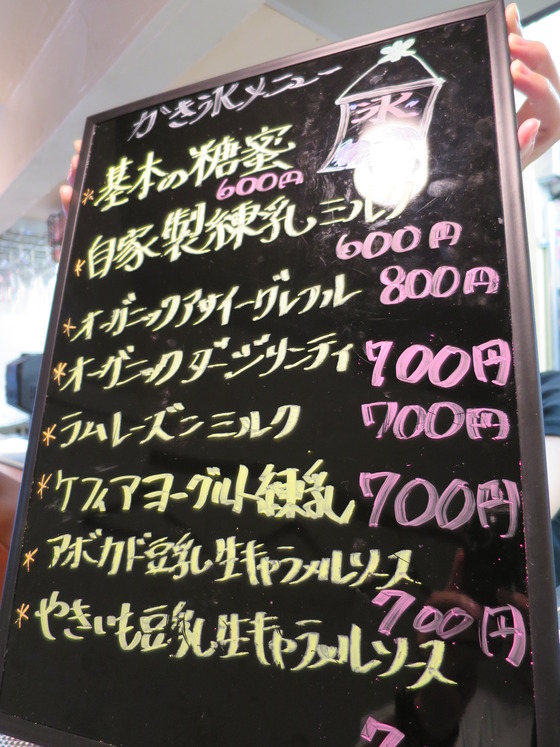 かき氷メニュー
氷
*基本の糖蜜
600円
*自家製練乳ミルク
600円
*オーガニックアサイーグレフル 800円
*オーガニックダージリンティ 700円
*ラムレーズンミルク 700円
*ケフィアヨーグルト練乳 700円
*アボカド豆乳生キャラメルソース
700円
*やきいも豆乳生キャラメルソース
7